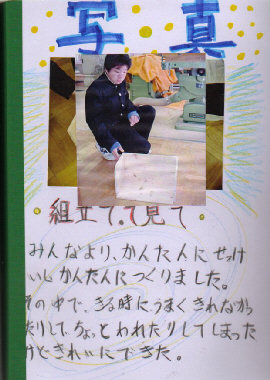 写真
組立て,て見て。
みんなより、かんた人にせっけ
いしかんた人につくりました。
その中で、きる時にうまくきれなかっ
たりして、ちょっとわれたりしてしまった
けどきれいにできた。